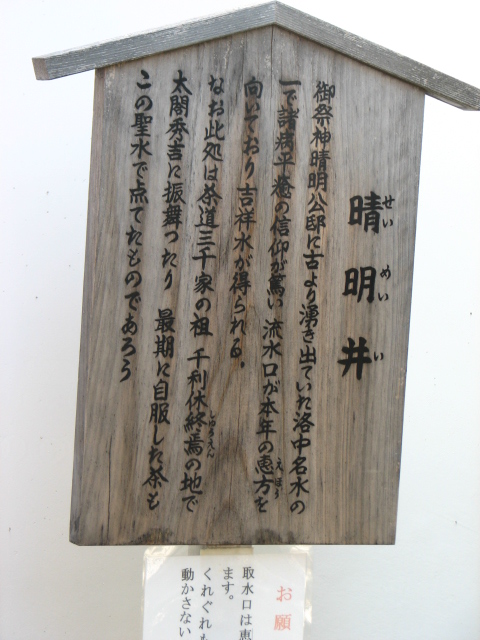 晴明井
せいめいい
御祭神晴明公邸に古より湧き出ていた洛中名水の
一で諸病平癒の信仰が篤い 流水口が本年の恵方を
えほう
向いており吉祥水が得られる。
なお此処は茶道三千家の祖 千利休終焉の地で
しゅうえん
太閤秀吉に振舞つたり 最期に自服した茶も
この聖水で点てたものであろう
お願
取水口は恵
ます。
くれぐれも
動かさない